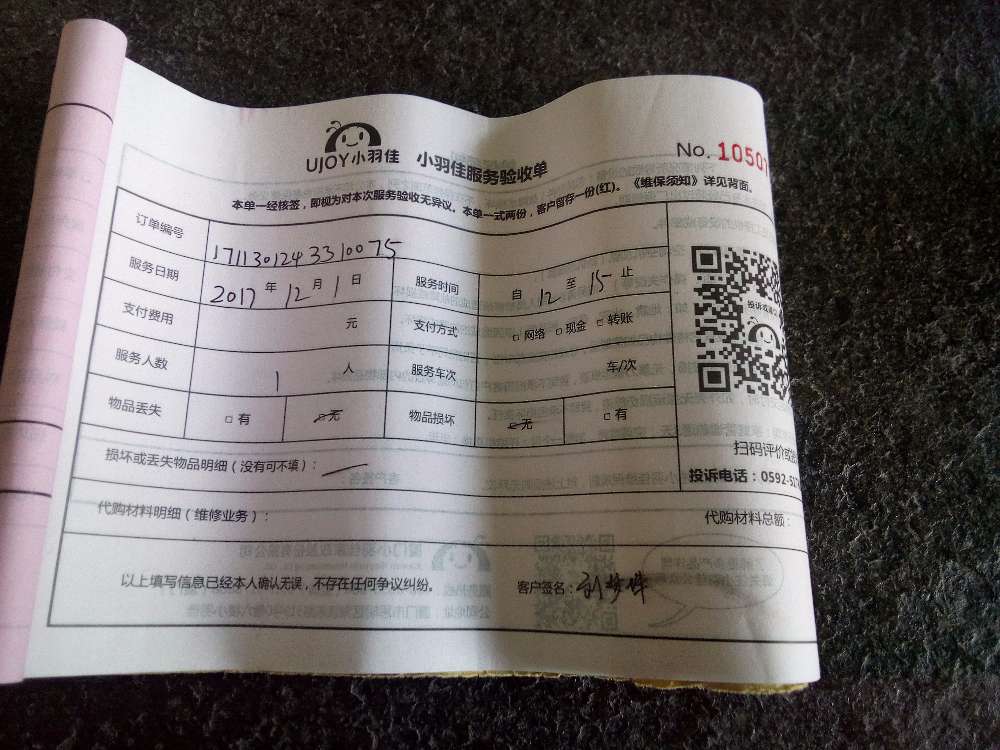 UJOY小羽佳 小羽佳服务验收单 No. 10501
本单一经核签，即视为对本次服务验收无异议。本单一式两份，客户留存一份(红)。《维保须知》详见背面。
订单编号 171130124331 0075
服务日期 2017 年 12 月 1 日 服务时间 自 12 至 15 止
支付费用 元 支付方式 □ 网络 □ 现金 □ 转账
服务人数 1 人 服务车次 车/次
物品丢失 □ 有 □ 无 物品损坏 □ 无 □ 有
投诉或建议
扫码评价或
投诉电话：0592-51
损坏或丢失物品明细（没有可不填）：
代购材料明细（维修业务）： 代购材料总额：
以上填写信息已经本人确认无误，不存在任何争议纠纷。 客户签名：刘梦